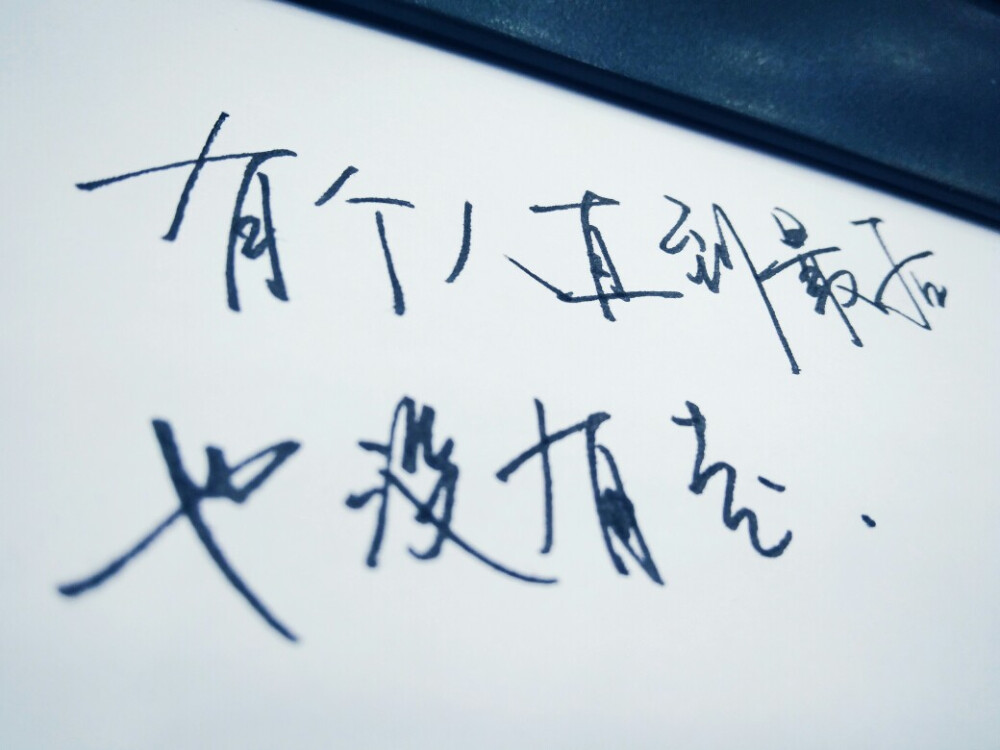 有个人直到最后
也没有忘.